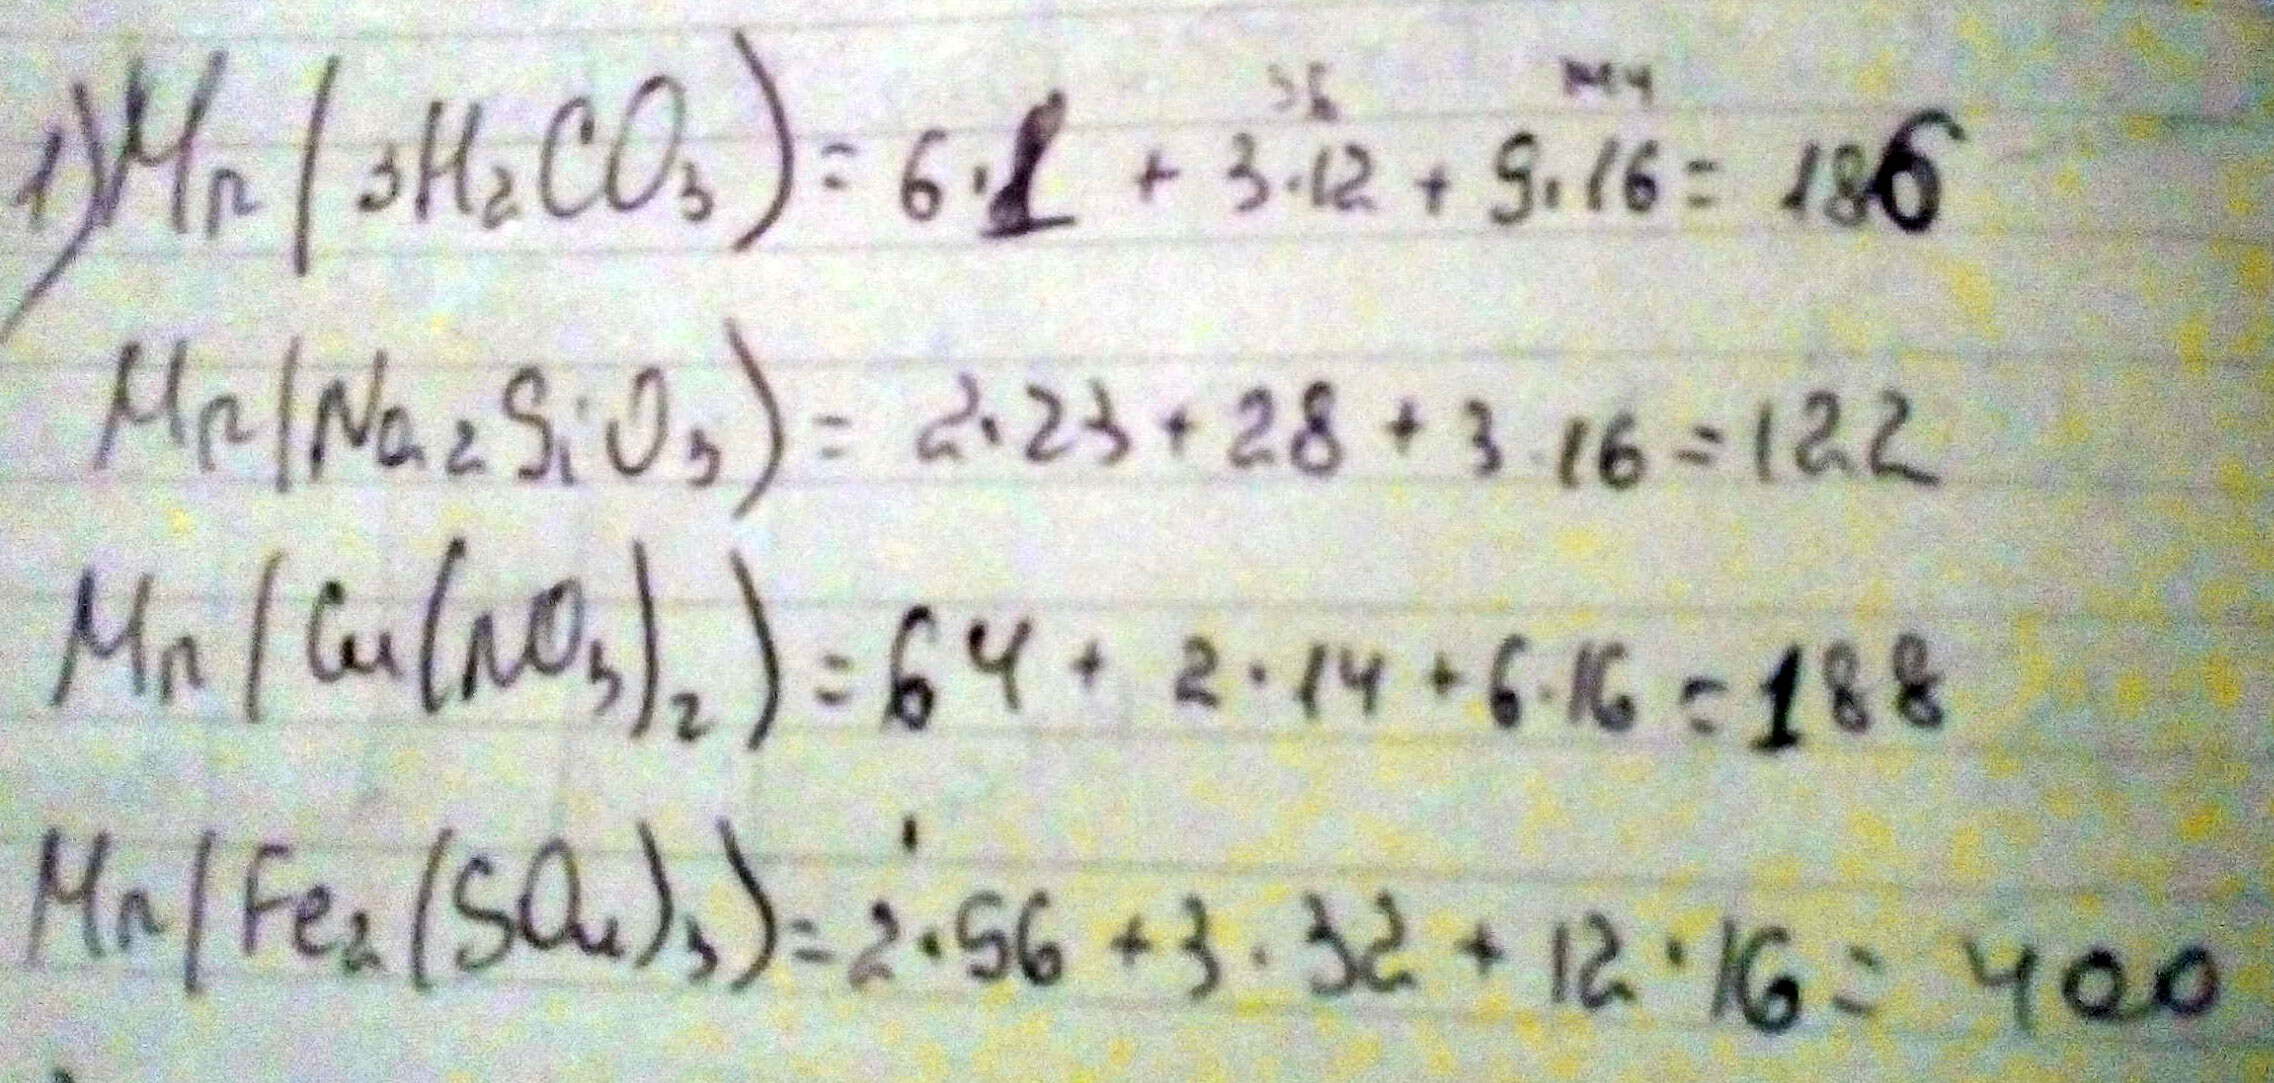 1) Mr(3H₂CO₃) = 6·1 + 3·12 + 9·16 = 186
Mr(Na₂SiO₃) = 2·23 + 28 + 3·16 = 122
Mr(Cu(NO₃)₂) = 64 + 2·14 + 6·16 = 188
Mr(Fe₂(SO₄)₃) = 2·56 + 3·32 + 12·16 = 400